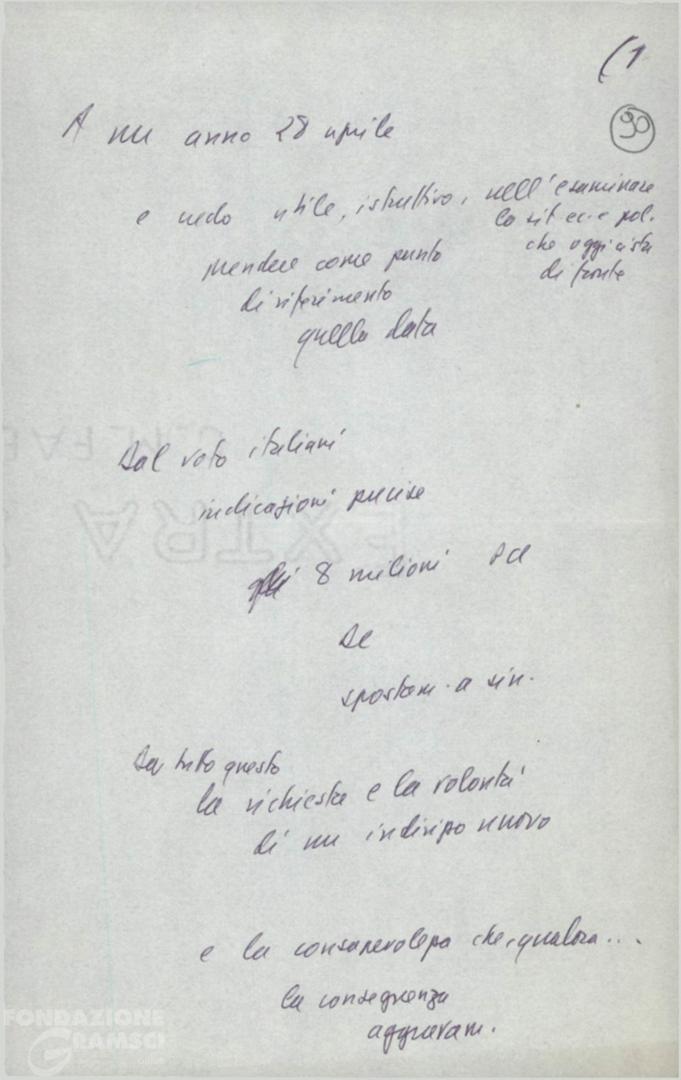 (1
90
A un anno 28 aprile
e credo utile, istruttivo, nell'esaminare
la sit ec. e pol.
che oggi ci sta
di fronte
prendere come punto
di riferimento
quella data
Dal voto italiani
indicazioni precise
8 milioni PCI
DC
spostam. a sin.
Da tutto questo
la richiesta e la volontà
di un indirizzo nuovo
e la consapevolezza che, qualora...
la conseguenza
aggravam.
EXTRA
FONDAZIONE
GRAMSCI